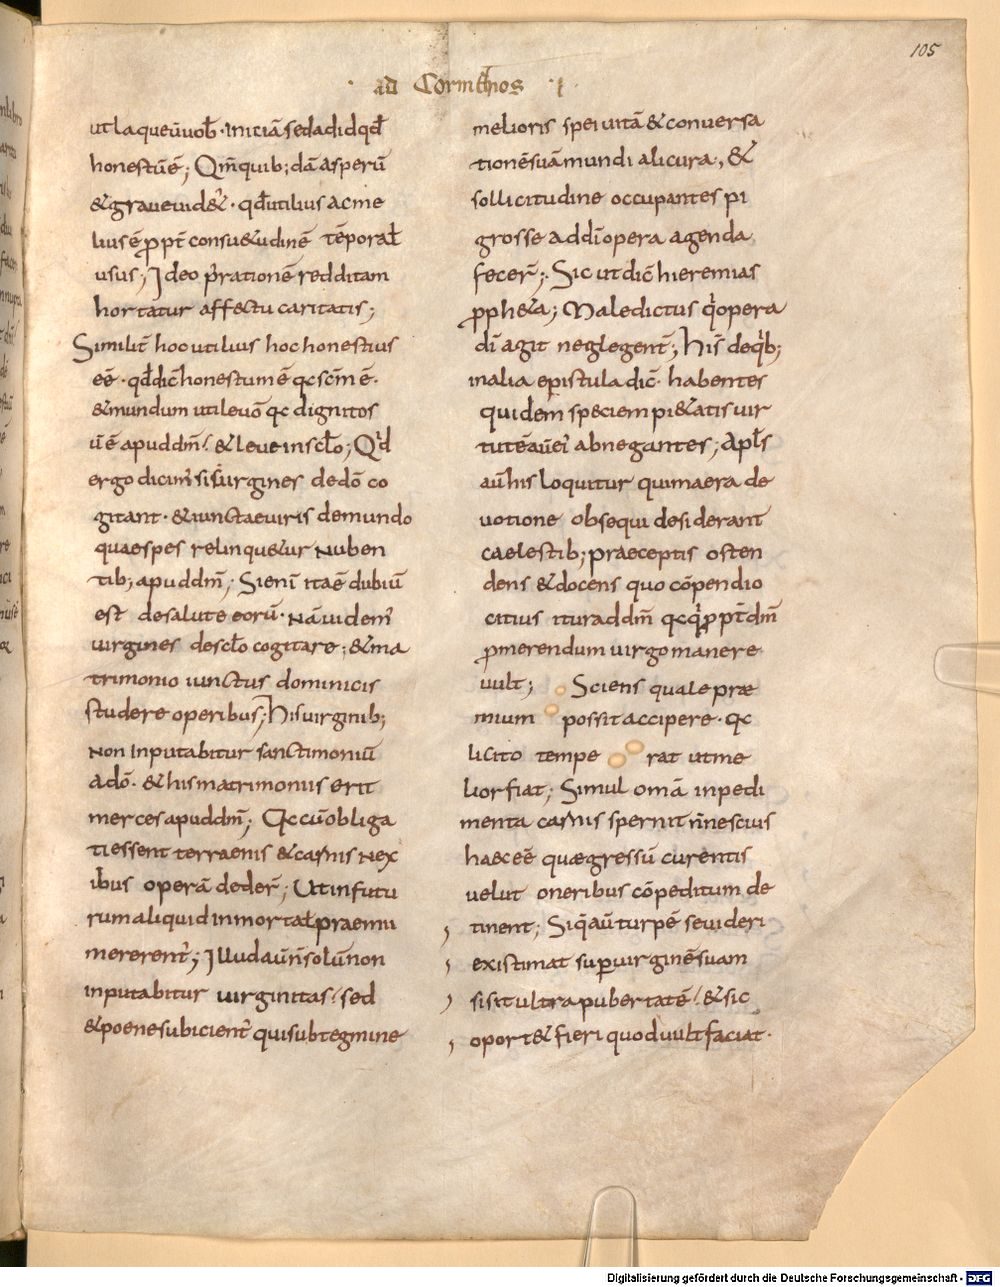 105
· ad Corinthos · I ·
ut laqueū vob̄ · iniciā sed ad id qd̄
honestū ē; Qm̄ quib; dā asperū
& graue uid&ʼ · qd̄ utilius ac me
lius ē ꝓpt̄ consu&udinē tēporal̄
usus; Ideo p̄ rationē redditam
hortatur aff&tu caritatis;
Similit̄ hoc utilius hoc honestius
eē · qd̄ dic̄ honestum ē qc sc̄m ē ·
& mundum utile uō qc dignitos
ū ē apud dm̄ & leue in scl̄o; Qd̄
ergo dicim̄ si si uirgines de dō co
gitant · & iunctae uiris de mundo
quae spes relinqu&ur nuben
tib; apud dm̄; Si eni ita ē dubiū
est de salute eorū · nā uidem̄
uirgines de scl̄o cogitare; & ma
trimonio iunctus dominicis
studere operibus; His uirginib;
non inputabitur sanctimoniū
a dō · & his matrimoniis erit
merces apud dm̄; Qc cū obliga
ti essent terraenis & carnis nex
ibus operā deder̄; Ut in futu
rum aliquid inmortal̄ praemii
mererent̄; Illud aū n̄ solū non
inputabitur uirginitas sed
& poene subicient̄ qui sub tegmine
melioris spei uitā & conuersa
tionē suā mundi alicura, &
sollicitudine occupantes pi
grosse ad dī opera agenda
fecer̄; Sic ut dic̄ hieremias
ꝓph&a; Maledictus q̄ opera
dī agit neglegent̄; His de qb;
in alia epistula dic̄ · habentes
quidem speciem pi&atis uir
tutē aū ei abnegantes; Apls̄
aū his loquitur qui maera de
uotione obsequi desiderant
caelestib; praeceptis osten
dens & docens quo cōpendio
citius itur ad dm̄ qc q̄ ꝓpt̄ dm̄
ꝓmerendum uirgo manere
uult; Sciens quale prae
mium possit accipere · qc
licito temperat ut me
lior fiat; Simul omā inpedi
menta carnis spernit n̄ nescius
haec eē quae gressū curentis
uelut oneribus cōpeditum de
tinent; Siq̄ aū turpē se uideri
existimat sup̄ uirginē suam
si sit ultra pubertatē & sic
oport& fieri quod uult faciat ·
Digitalisierung gefördert durch die Deutsche Forschungsgemeinschaft - DFG